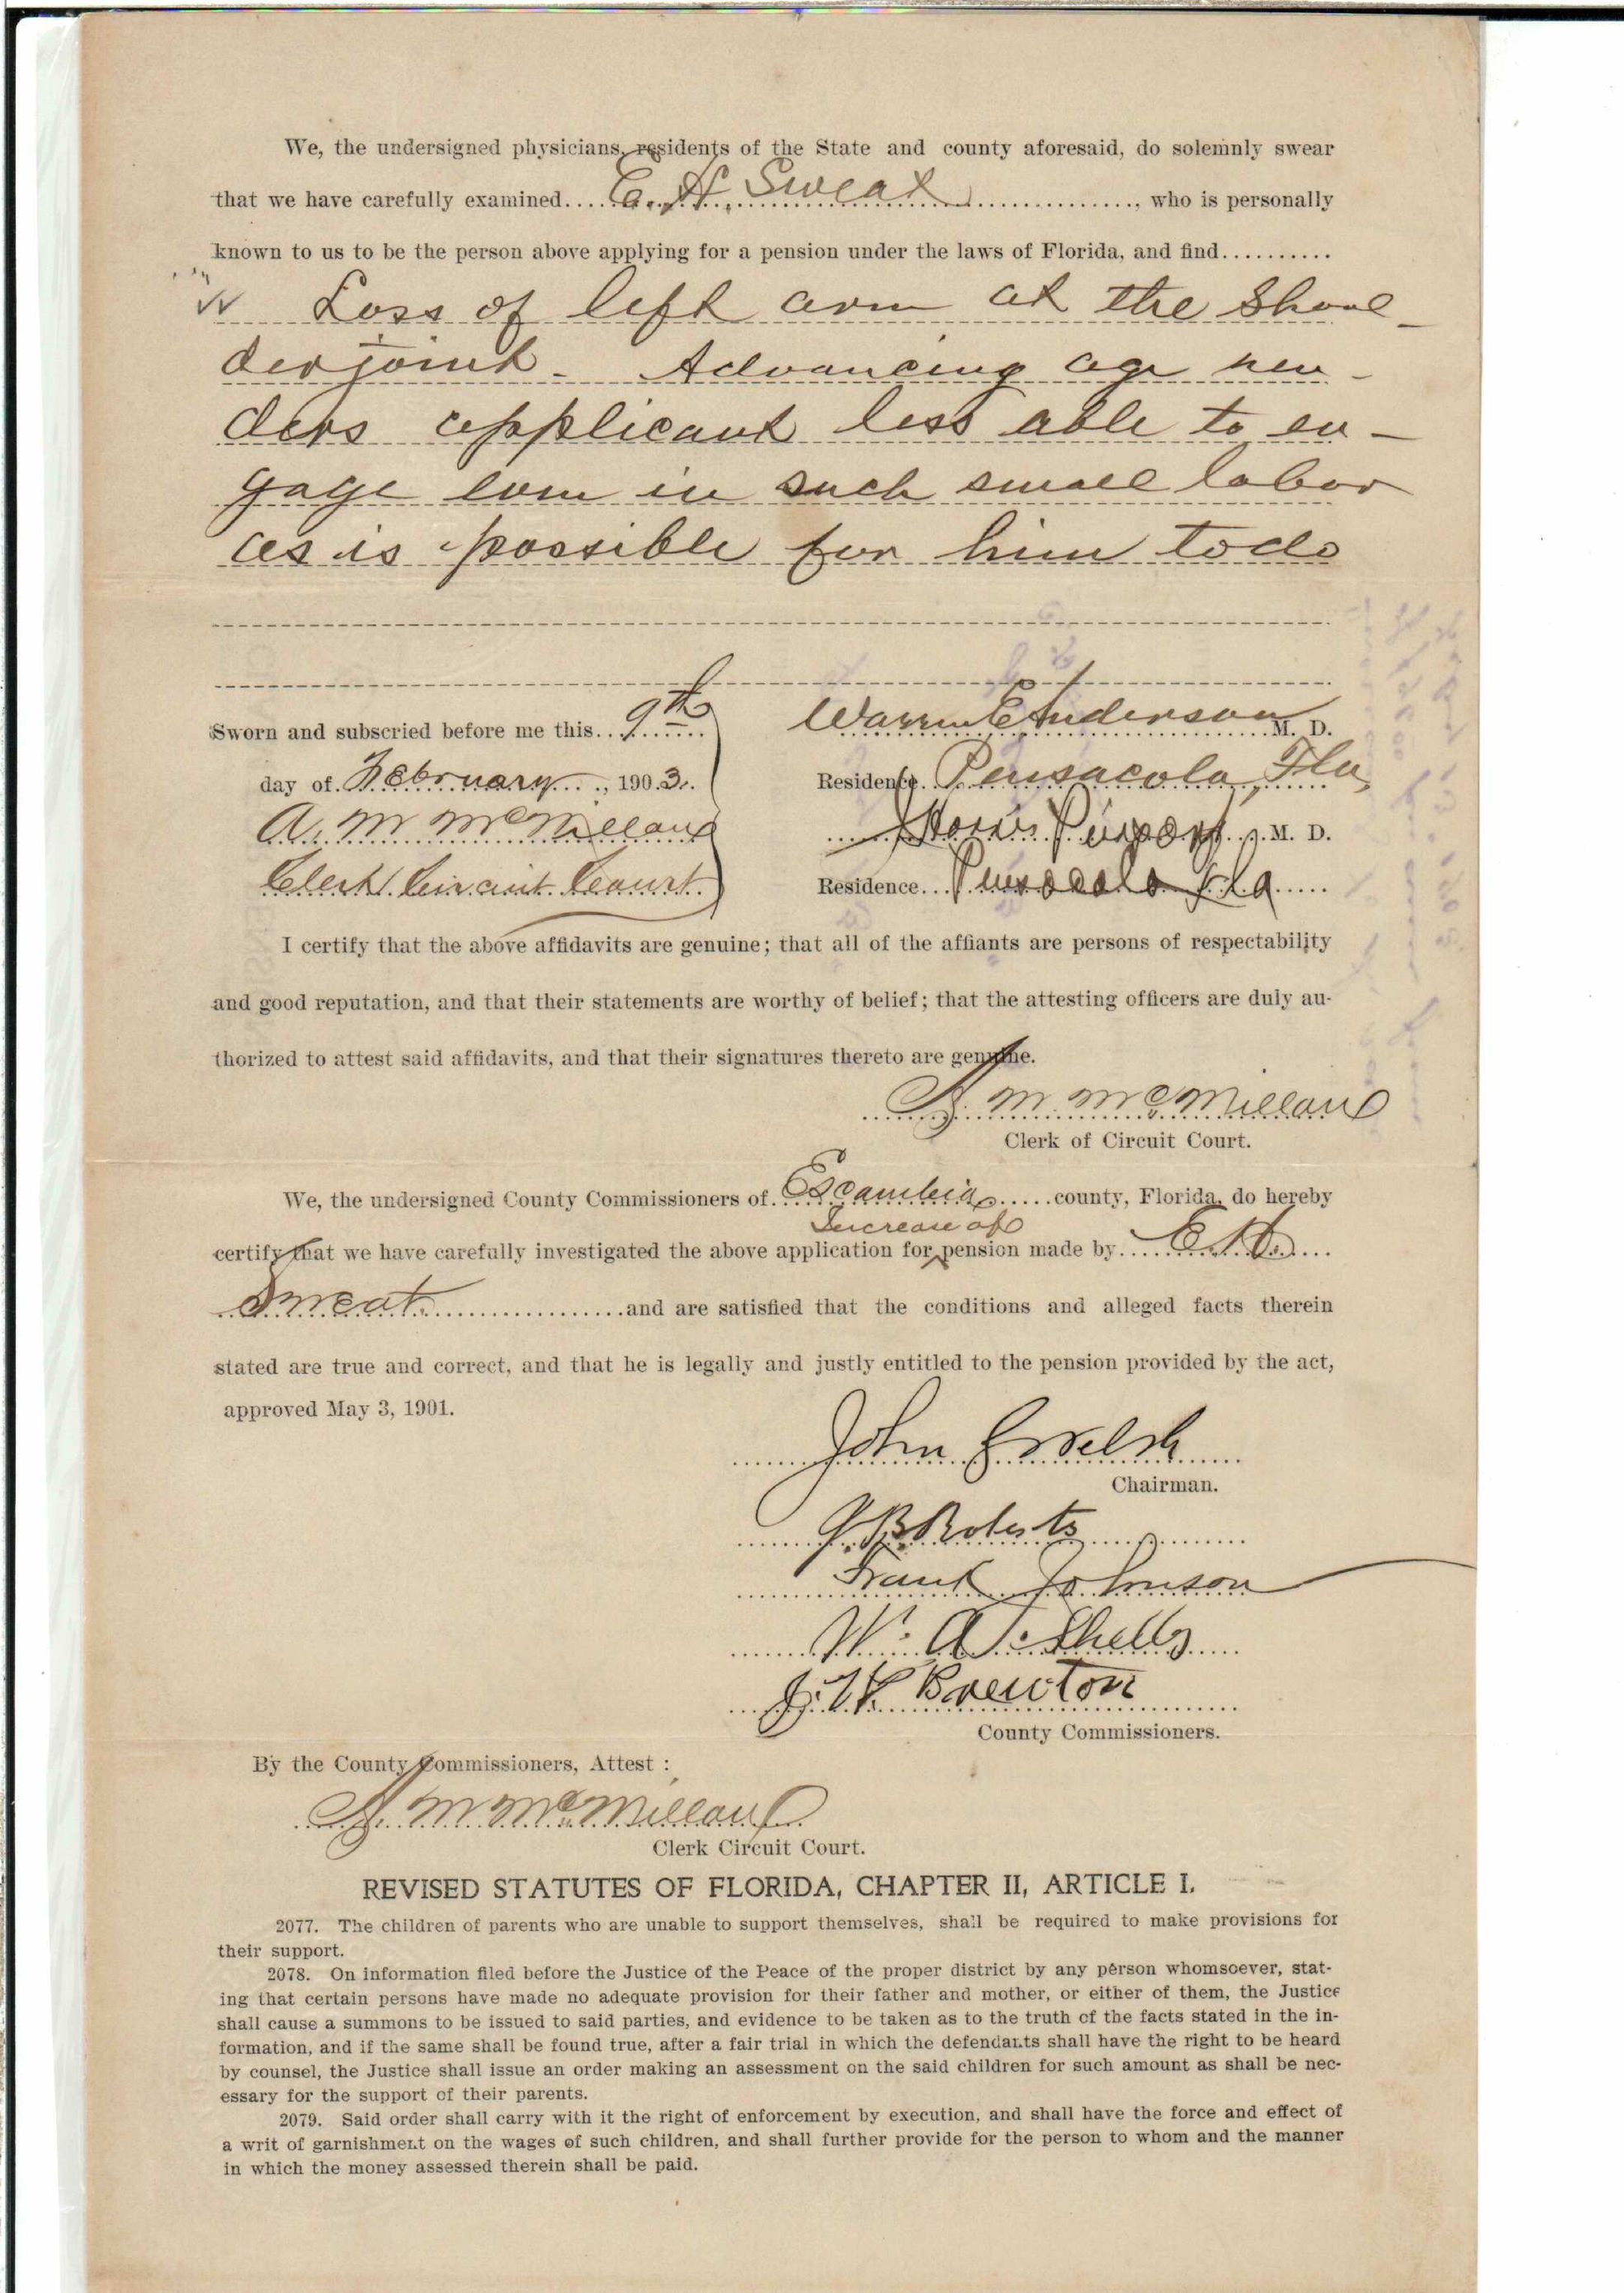 We, the undersigned physicians, residents of the State and county aforesaid, do solemnly swear
that we have carefully examined..... E. H. Sweat ..............., who is personally
known to us to be the person above applying for a pension under the laws of Florida, and find..........
Loss of left arm at the Shoul-
der joint. Advancing age ren-
ders applicant less able to en-
gage even in such small labor
as is possible for him to do
Sworn and subscried before me this.. 9th
Warren E Anderson M. D.
day of. February ...., 1903.
Residence. Pensacola, Fla,
A. M McMillan
M. D.
Clerk Circuit Court
Residence... Pensacola Fla
I certify that the above affidavits are genuine; that all of the affiants are persons of respectability
and good reputation, and that their statements are worthy of belief; that the attesting officers are duly au-
thorized to attest said affidavits, and that their signatures thereto are genuine.
A. M. McMillan
Clerk of Circuit Court.
We, the undersigned County Commissioners of. Escambia .....county, Florida, do hereby
Increase of
certify that we have carefully investigated the above application for ‸ pension made by..... E. H.
Sweat....................and are satisfied that the conditions and alleged facts therein
stated are true and correct, and that he is legally and justly entitled to the pension provided by the act,
approved May 3, 1901.
John E Welsh
Chairman.
J. B. Roberts
Frank Johnson
W. A. Shelby
Brewton
County Commissioners.
By the County Commissioners, Attest :
A. M. McMillan
Clerk Circuit Court.
REVISED STATUTES OF FLORIDA, CHAPTER II, ARTICLE I.
2077. The children of parents who are unable to support themselves, shall be required to make provisions for
their support.
2078. On information filed before the Justice of the Peace of the proper district by any person whomsoever, stat-
ing that certain persons have made no adequate provision for their father and mother, or either of them, the Justice
shall cause a summons to be issued to said parties, and evidence to be taken as to the truth of the facts stated in the in-
formation, and if the same shall be found true, after a fair trial in which the defendants shall have the right to be heard
by counsel, the Justice shall issue an order making an assessment on the said children for such amount as shall be nec-
essary for the support of their parents.
2079. Said order shall carry with it the right of enforcement by execution, and shall have the force and effect of
a writ of garnishment on the wages of such children, and shall further provide for the person to whom and the manner
in which the money assessed therein shall be paid.